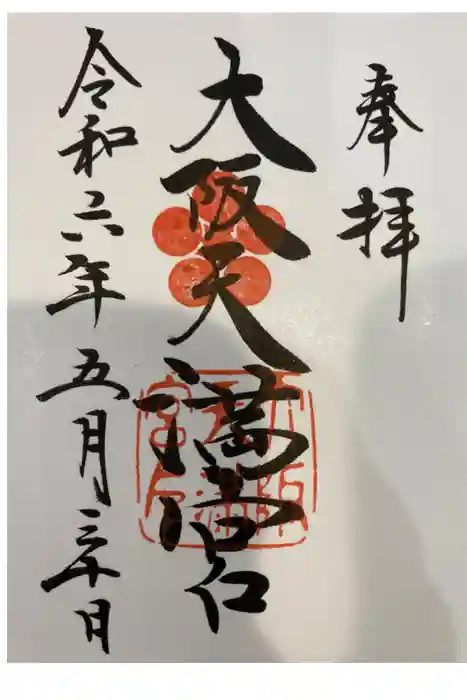 奉拝
大阪天満宮
令和六年五月三十日